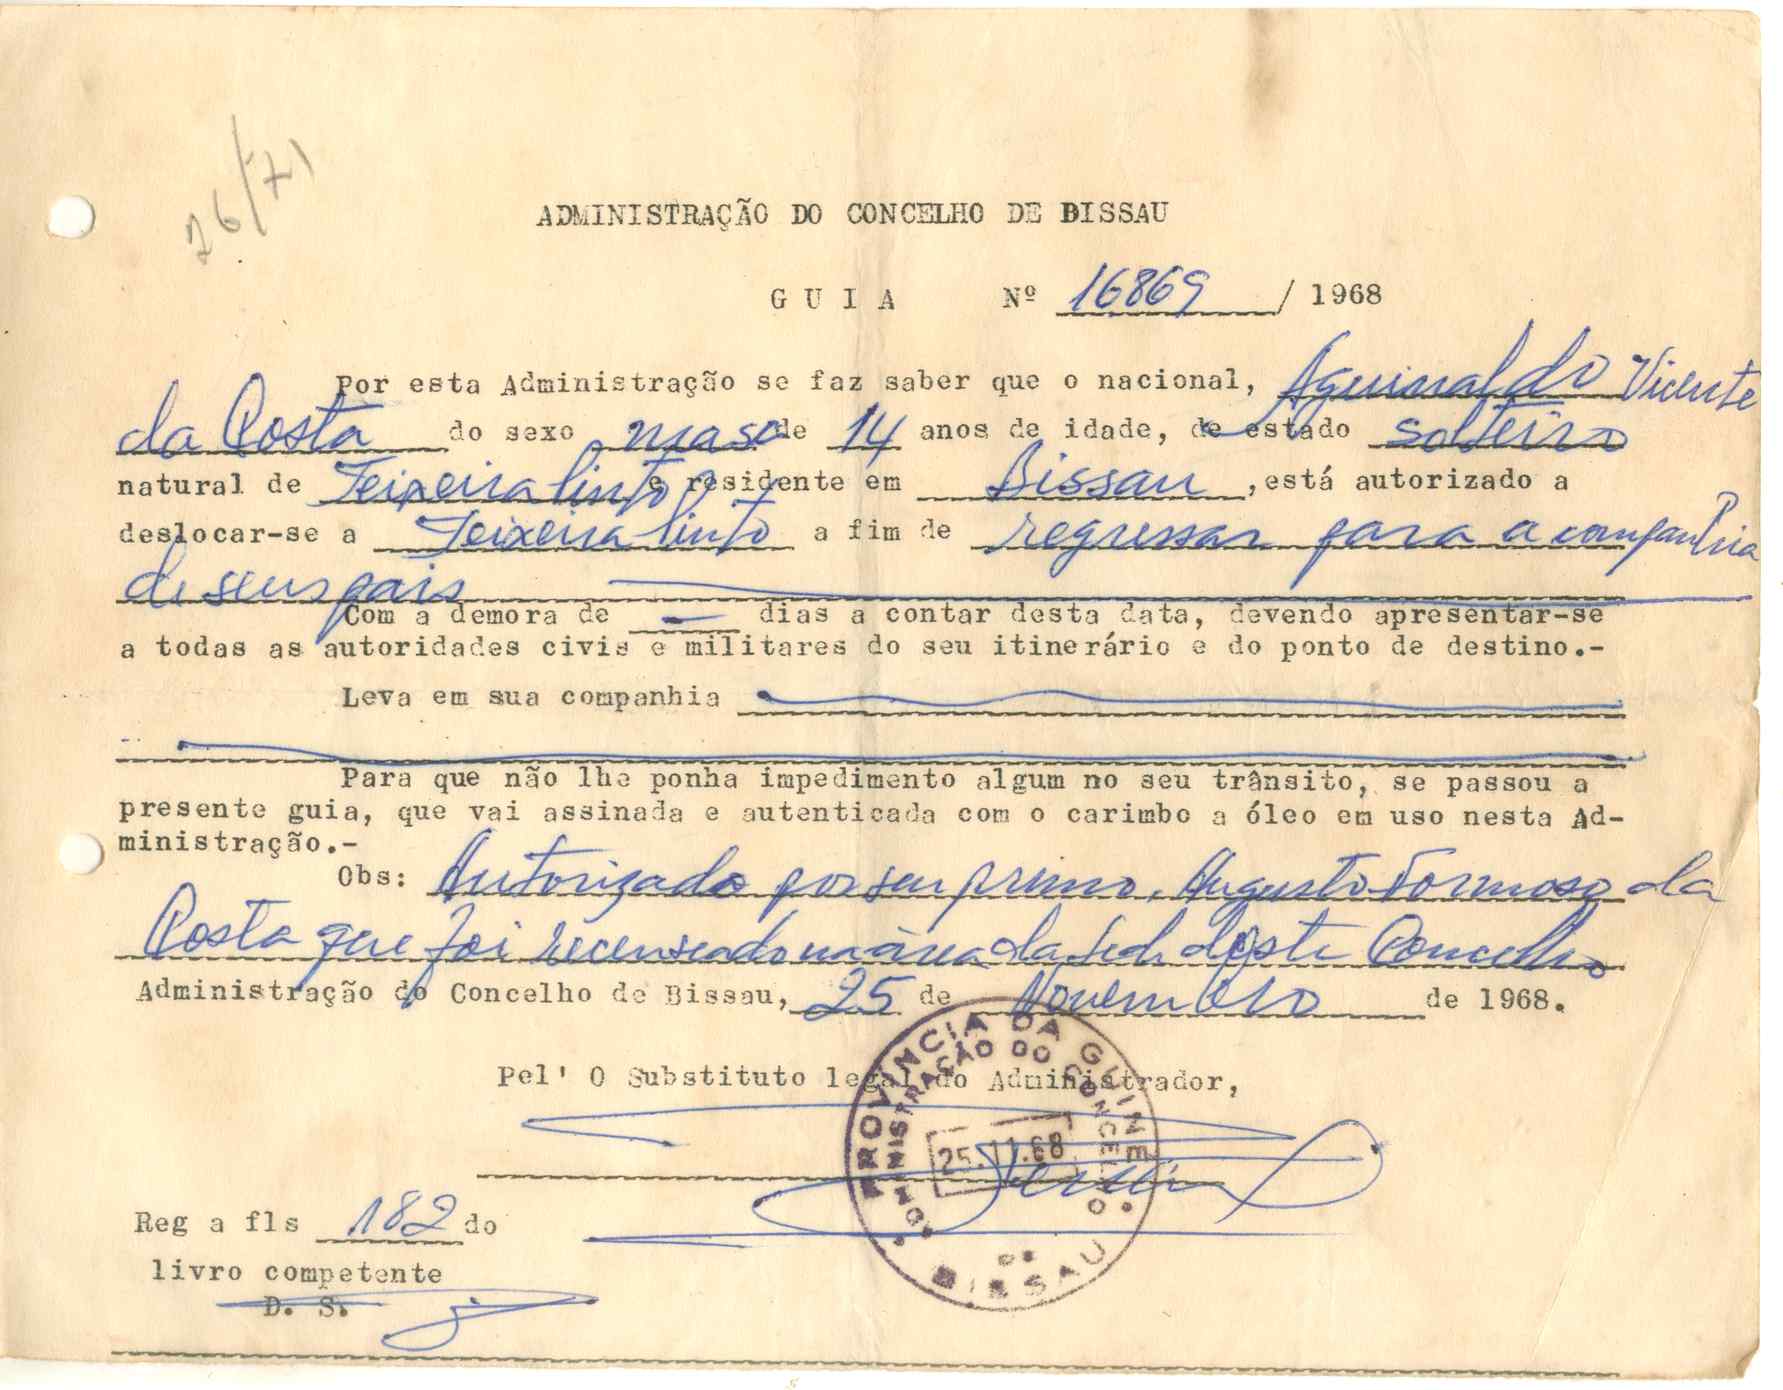 26/71
ADMINISTRAÇÃO DO CONCELHO DE BISSAU
G U I A Nº 16869 / 1968
Por esta Administração se faz saber que o nacional, Aguinaldo Vicente
da Costa do sexo masc de 14 anos de idade, de estado solteiro
natural de Teixeira Pinto e residente em Bissau, está autorizado a
deslocar-se a Teixeira Pinto a fim de regressar para a companhia
de seus pais
Com a demora de — dias a contar desta data, devendo apresentar-se
a todas as autoridades civis e militares do seu itinerário e do ponto de destino.-
Leva em sua companhia
Para que não lhe ponha impedimento algum no seu trânsito, se passou a
presente guia, que vai assinada e autenticada com o carimbo a óleo em uso nesta Ad-
ministração.-
Obs: Autorizado por seu primo, Augusto Formoso da
Costa que foi recenseado na área da Sede deste Concelho
Administração do Concelho de Bissau, 25 de Novembro de 1968.
Pel' O Substituto legal do Administrador,
PROVÍNCIA DA GUINÉ
ADMINISTRAÇÃO DO CONCELHO
25.11.68
DE
BISSAU
Reg a fls 182 do
livro competente
D. S.